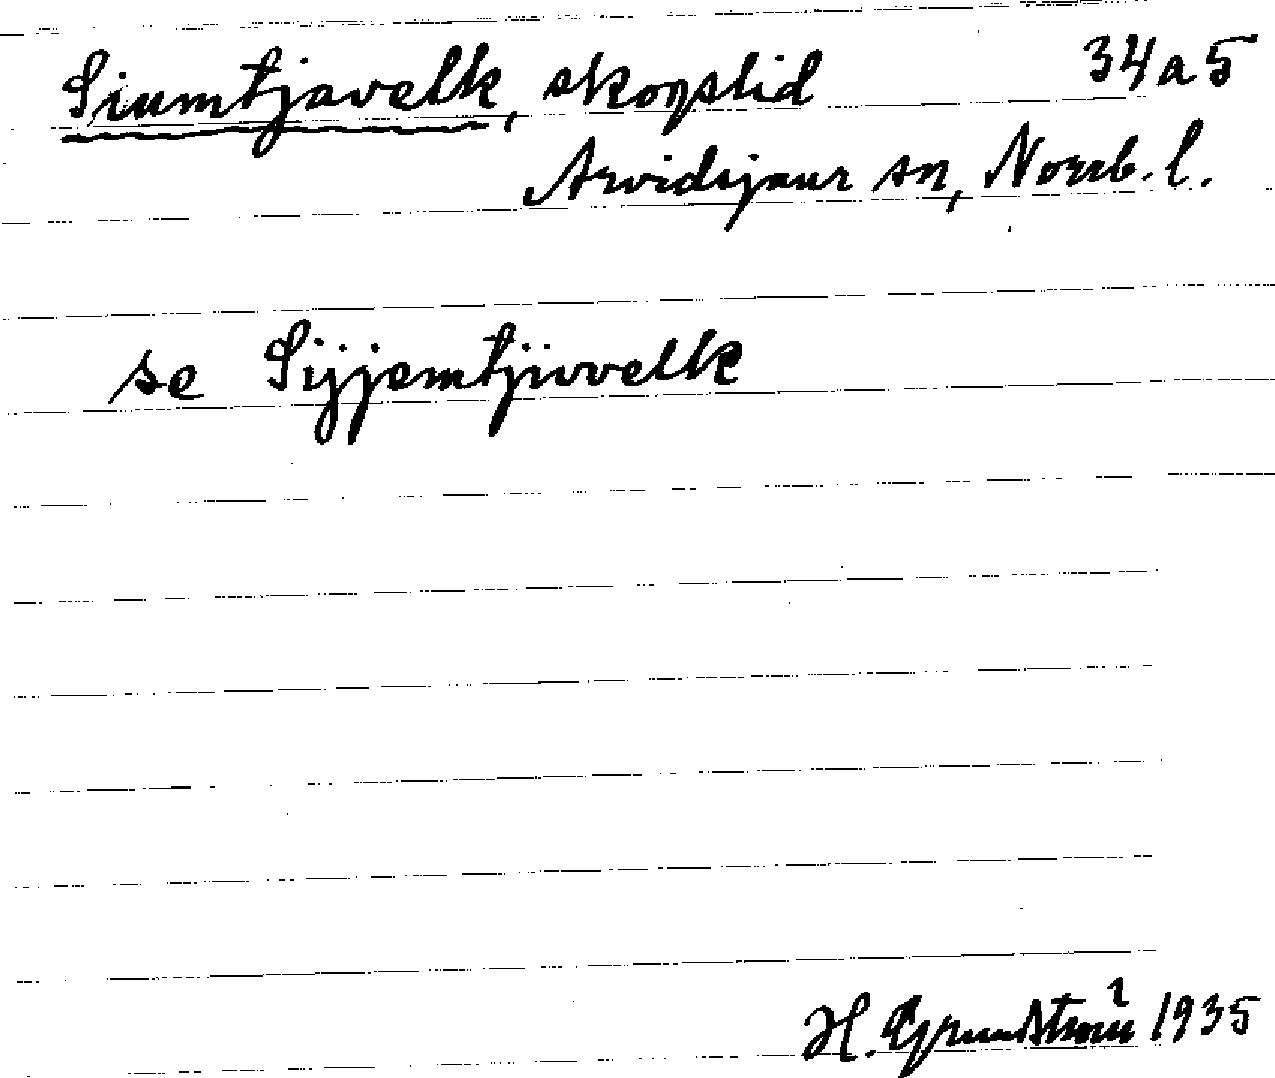 Siumtjavelk, skogslid 34a5
Arvidsjaur sn, Norrb. l.
se Sijjemtjivvelk
H. Grundström 1935